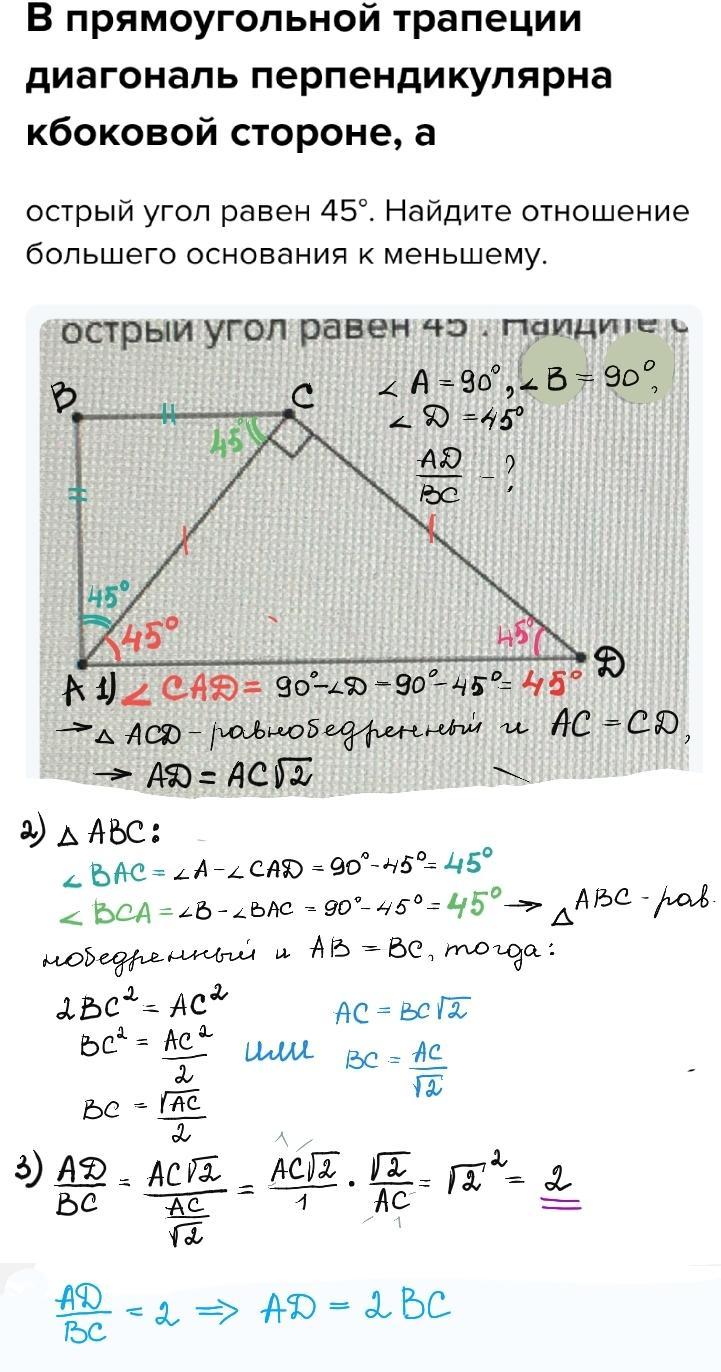 В прямоугольной трапеции
диагональ перпендикулярна
кбоковой стороне, а
острый угол равен 45°. Найдите отношение
большего основания к меньшему.
острый угол равен 45 . Найдите с
B
C
∠ A = 90°, ∠ B = 90°,
45°
∠ D = 45°
AD/BC - ?
45°
45°
45°
D
A 1) ∠ CAD = 90°-∠D = 90°-45° = 45°
→ △ ACD - равнобедренный и AC = CD,
→ AD = AC√2
2) △ ABC:
∠ BAC = ∠A - ∠CAD = 90° - 45° = 45°
∠ BCA = ∠B - ∠BAC = 90° - 45° = 45° → △ ABC - рав-
нобедренный и AB = BC, тогда:
2BC² = AC²
AC = BC√2
BC² = AC²/2 или BC = AC/√2
BC = √AC/2
3) AD/BC = AC√2/(AC/√2) = AC√2/1 · √2/AC = √2² = 2
1
1
AD/BC = 2 ⇒ AD = 2 BC